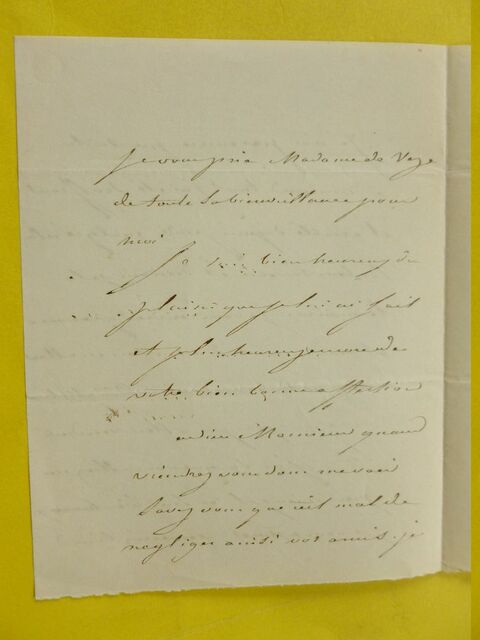 Je vous prie Madame de Voge
de toute sa bienveillance pour
moi
Je suis bien heureux du
plaisir que je lui ai fait
et plus heureux encore de
votre bien bonne affection
adieu Monsieur quand
viendrez vous donc me voir
Savez vous que c'est mal de
negliger ainsi vos amis. je